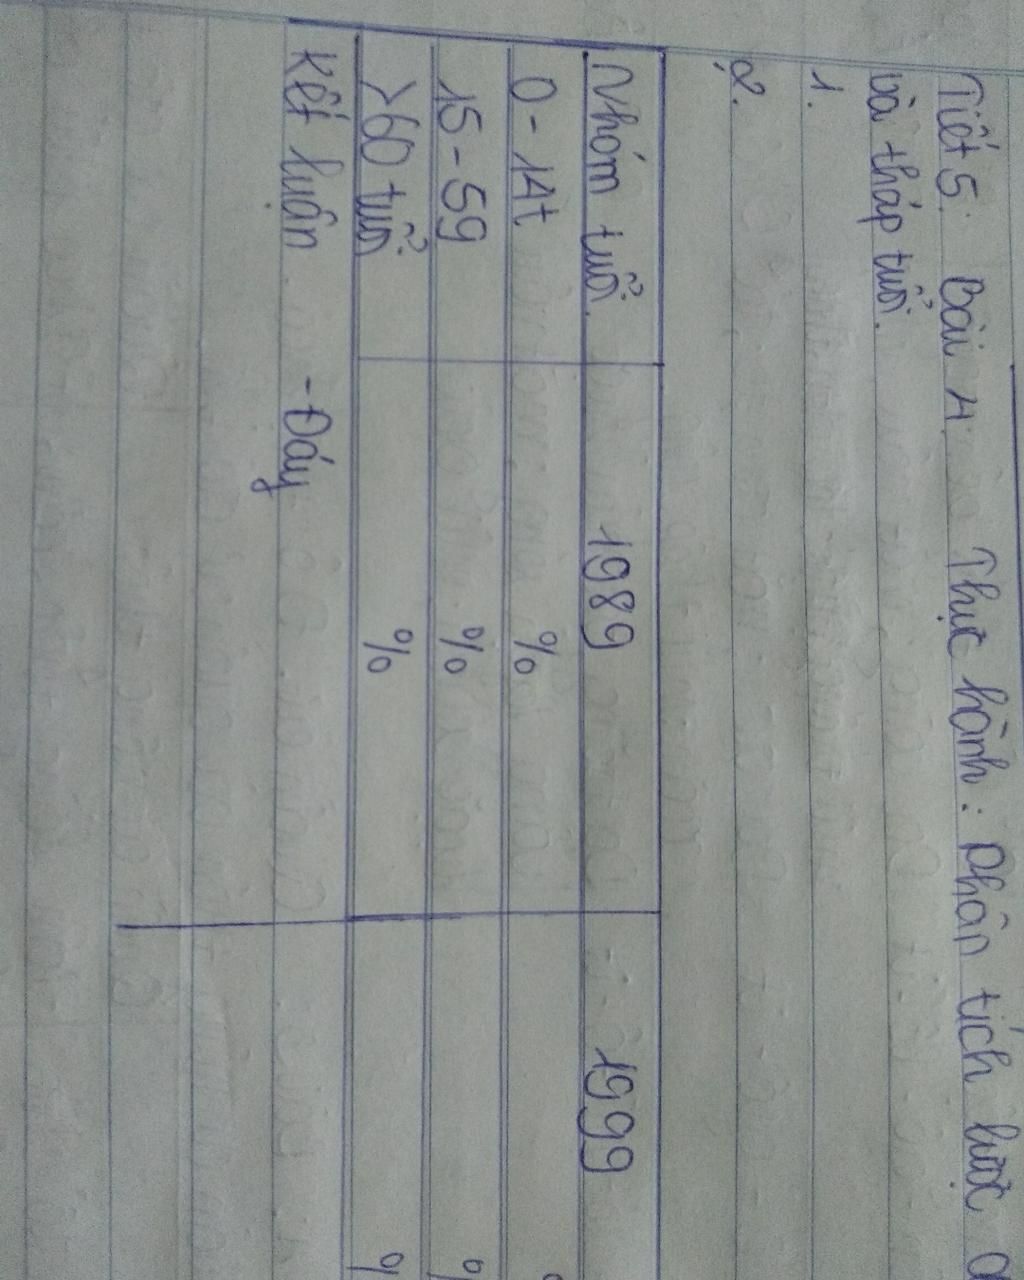 Tiết 5: Bài 4: Thực hành: Phân tích lược
và tháp tuổi.
1.
2.
Nhóm tuổi. 1989 1999
0-14t %
15-59 % %
>60 tuổi % %
Kết luận - Đáy